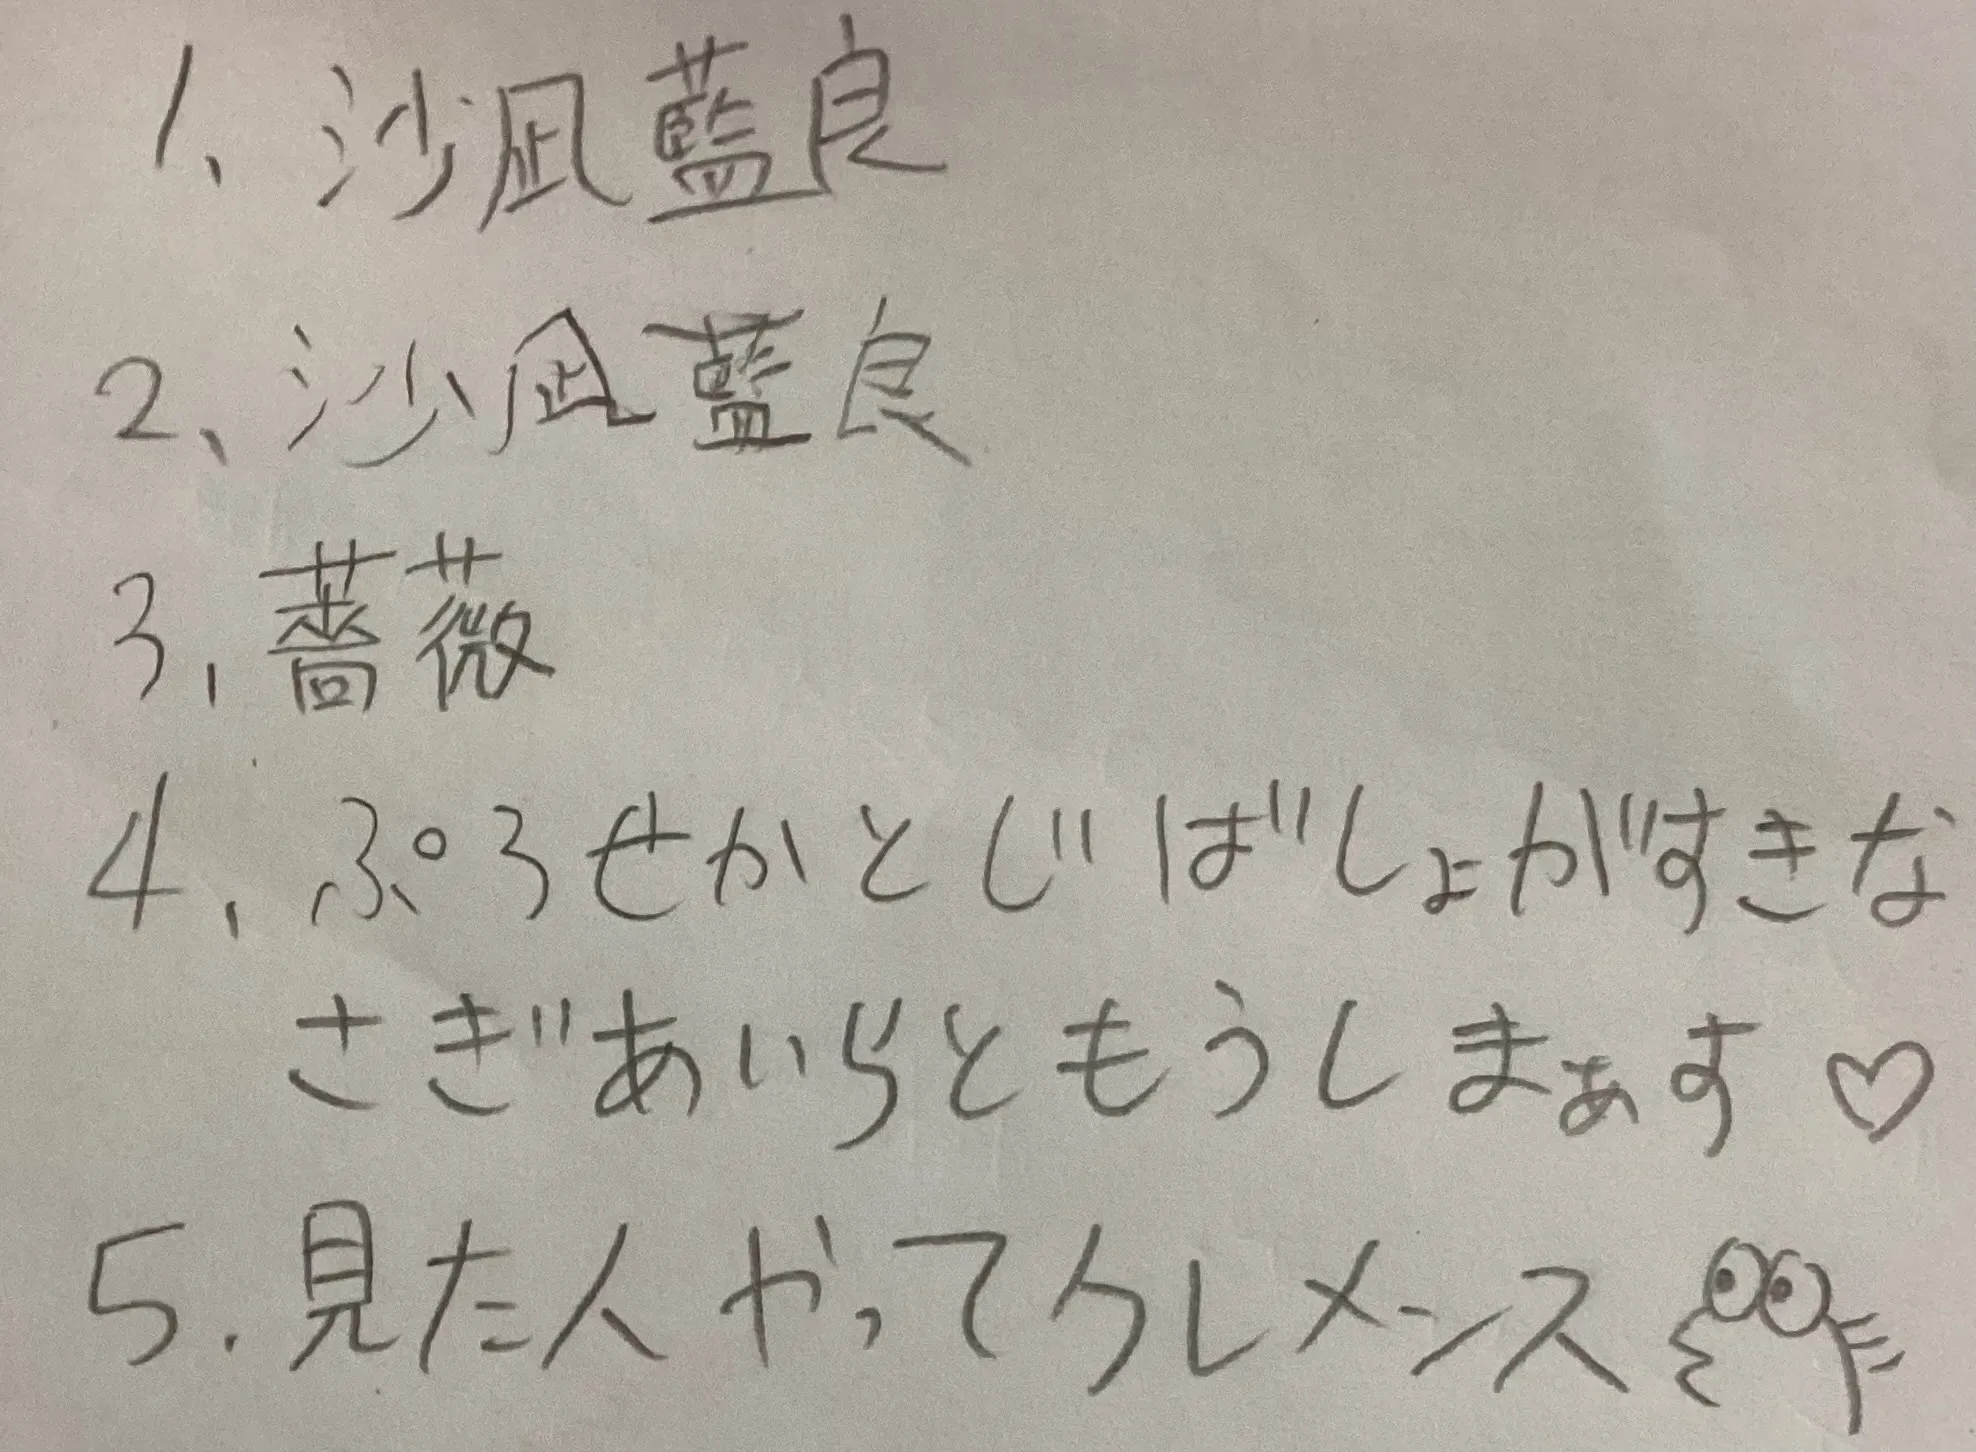 1、沙凪藍良
2、沙凪藍良
3、薔薇
4、ぷろせかとじばしょがすきな
さぎあいらともうしまぁす♡
5.見た人やってクレメンス